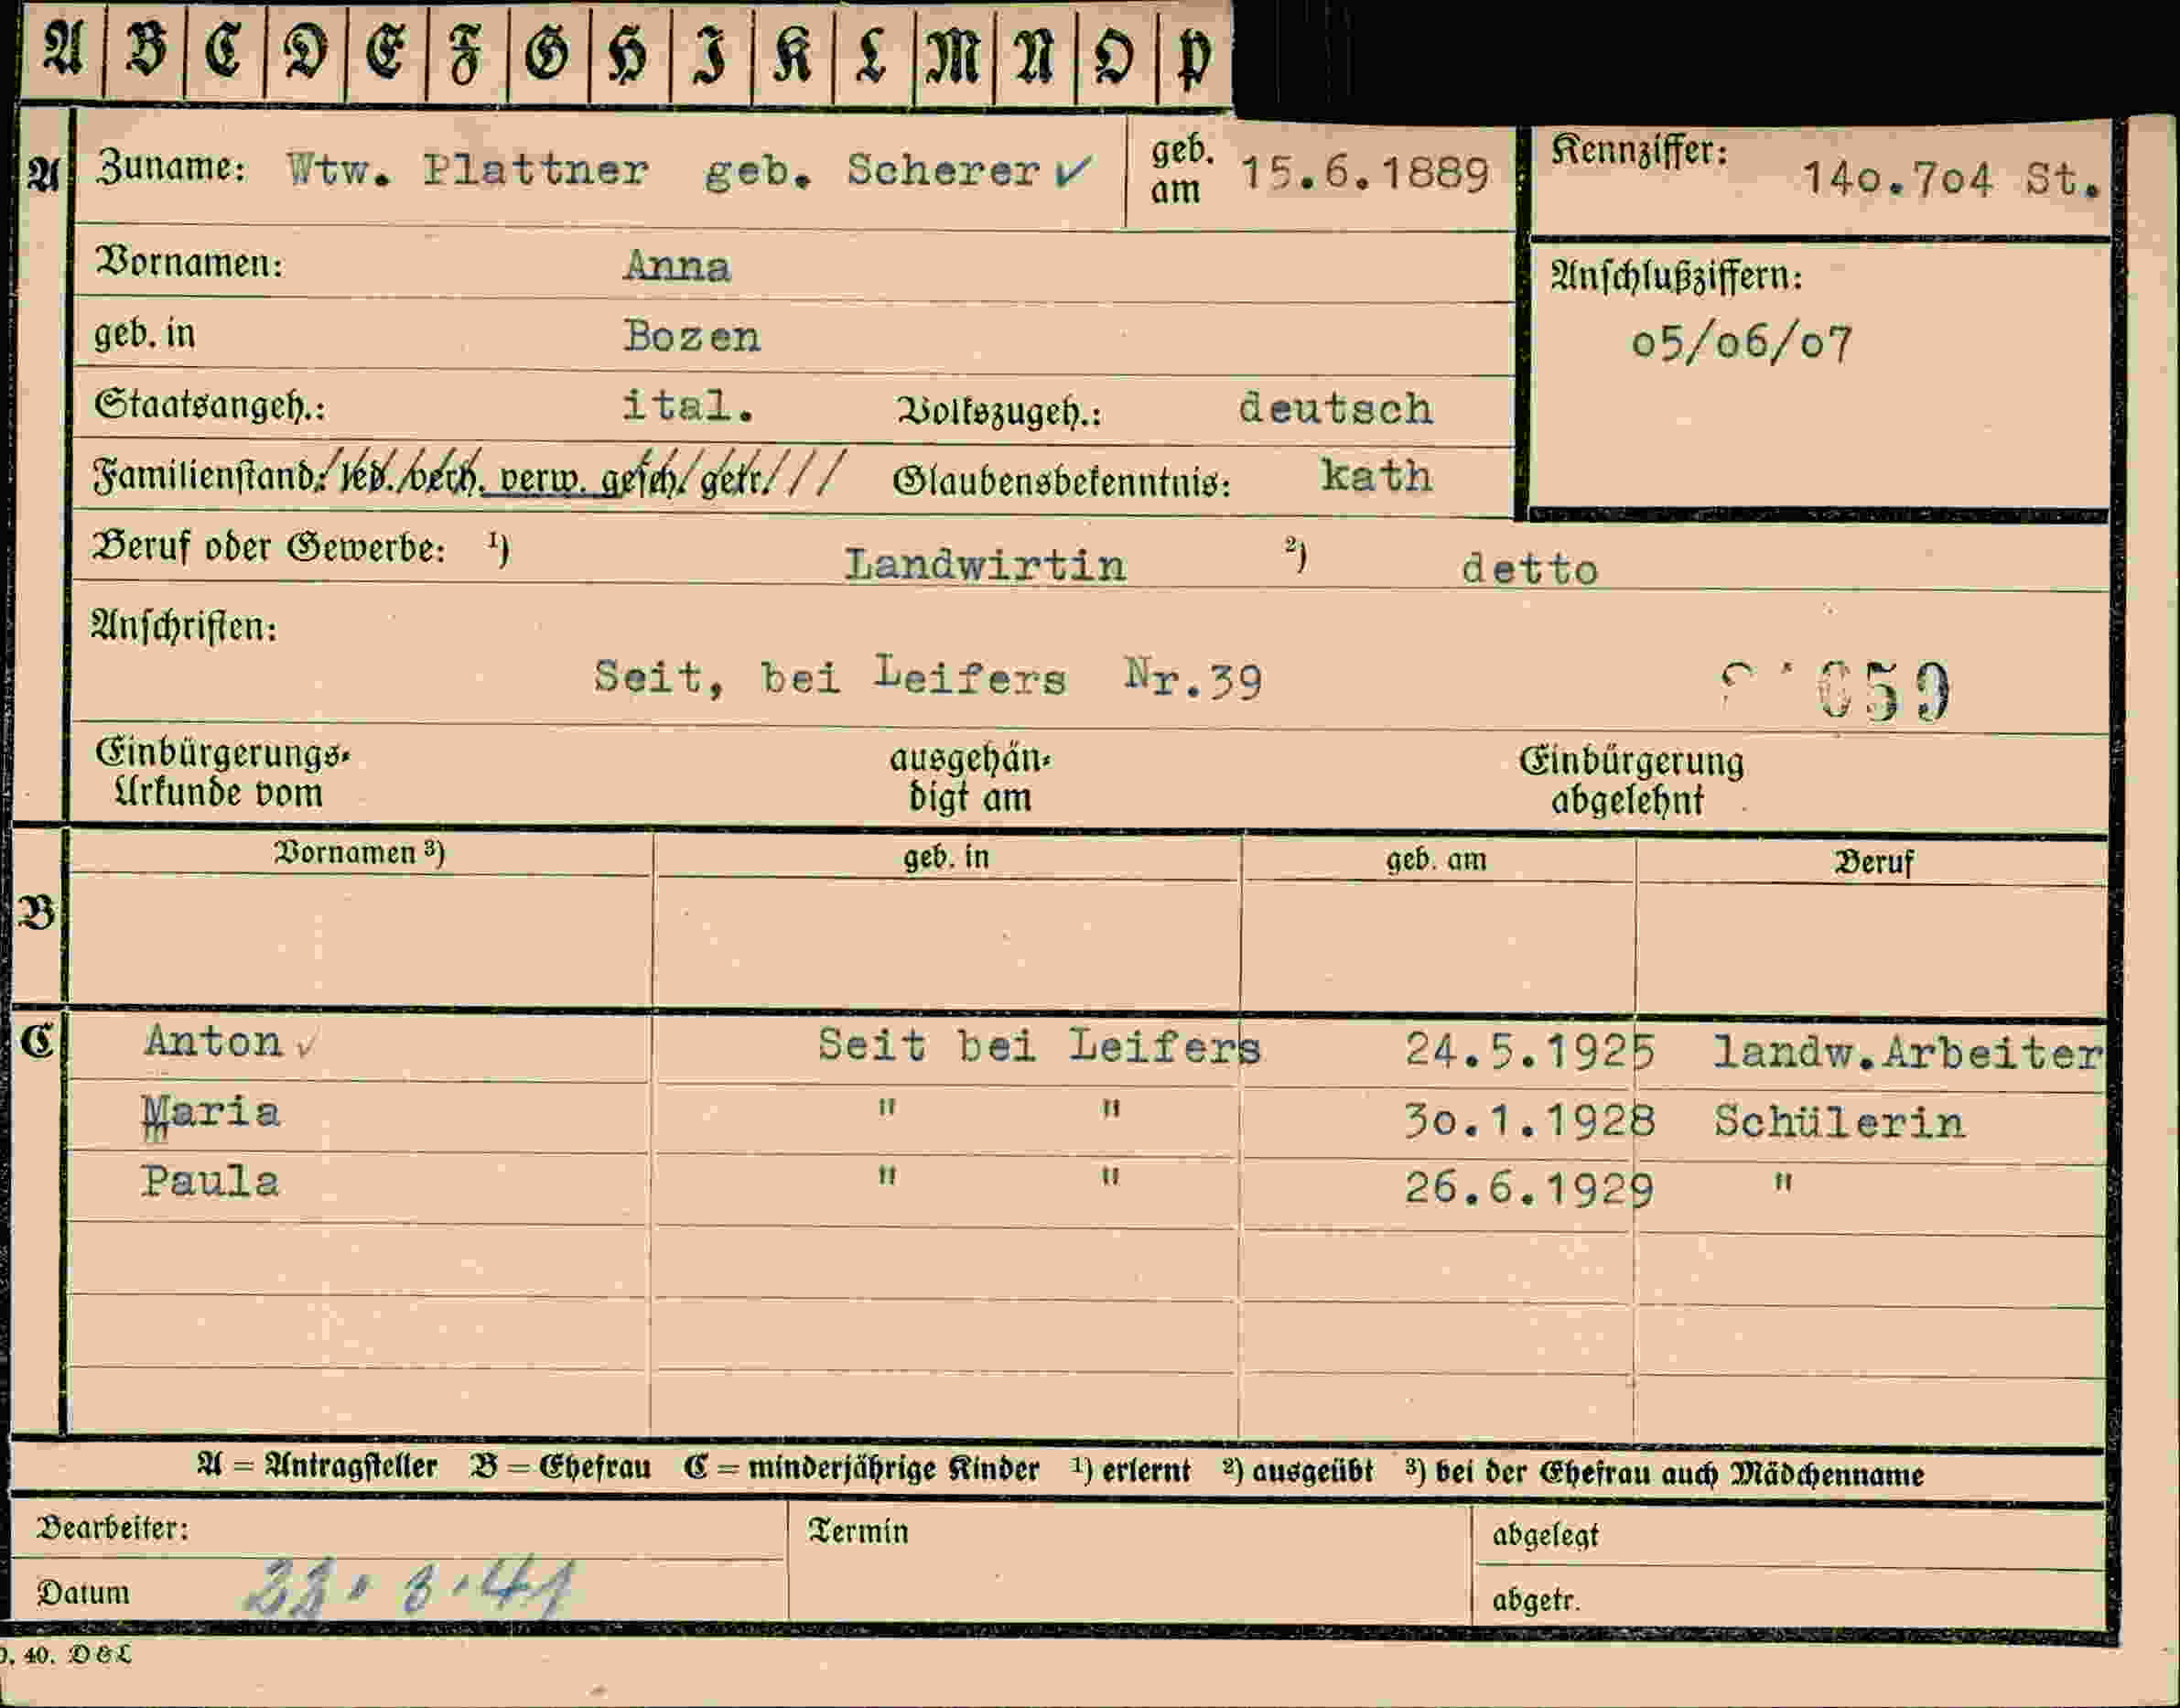 A B C D E F G H I K L M N O P
A Zuname: Wtw. Plattner geb. Scherer ✓ geb. am 15.6.1889 Kennziffer: 14o.7o4 St.
Vornamen: Anna
Anschlußziffern:
geb. in Bozen
o5/o6/o7
Staatsangeh.: ital. Volkszugeh.: deutsch
Familienstand: led. verh. verw. gesch. getr. Glaubensbekenntnis: kath
Beruf oder Gewerbe: ¹) Landwirtin ²) detto
Anschriften:
Seit, bei Leifers Nr.39 059
Einbürgerungs- ausgehän- Einbürgerung
Urkunde vom digt am abgelehnt
Vornamen ³) geb. in geb. am Beruf
B
C Anton ✓ Seit bei Leifers 24.5.1925 landw.Arbeiter
Maria " " 3o.1.1928 Schülerin
Paula " " 26.6.1929 "
A = Antragsteller B = Ehefrau C = minderjährige Kinder ¹) erlernt ²) ausgeübt ³) bei der Ehefrau auch Mädchenname
Bearbeiter: Termin abgelegt
Datum abgetr.
40. D&L